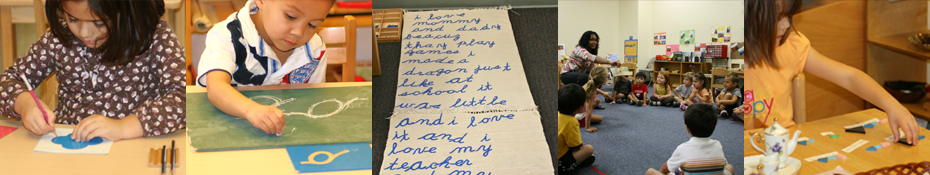 i love
mommy
and dady
beacuz
thay play
games i
made a
dragon just
like at
school it
was little
and i love
it and i
love my
teacher
and my
ppy